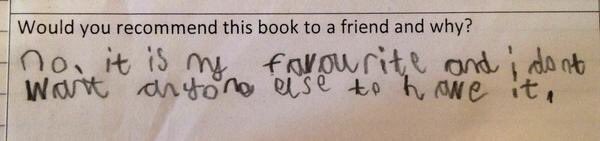 Would you recommend this book to a friend and why?
no. it is my favourite and i dont
want anyone else to have it.